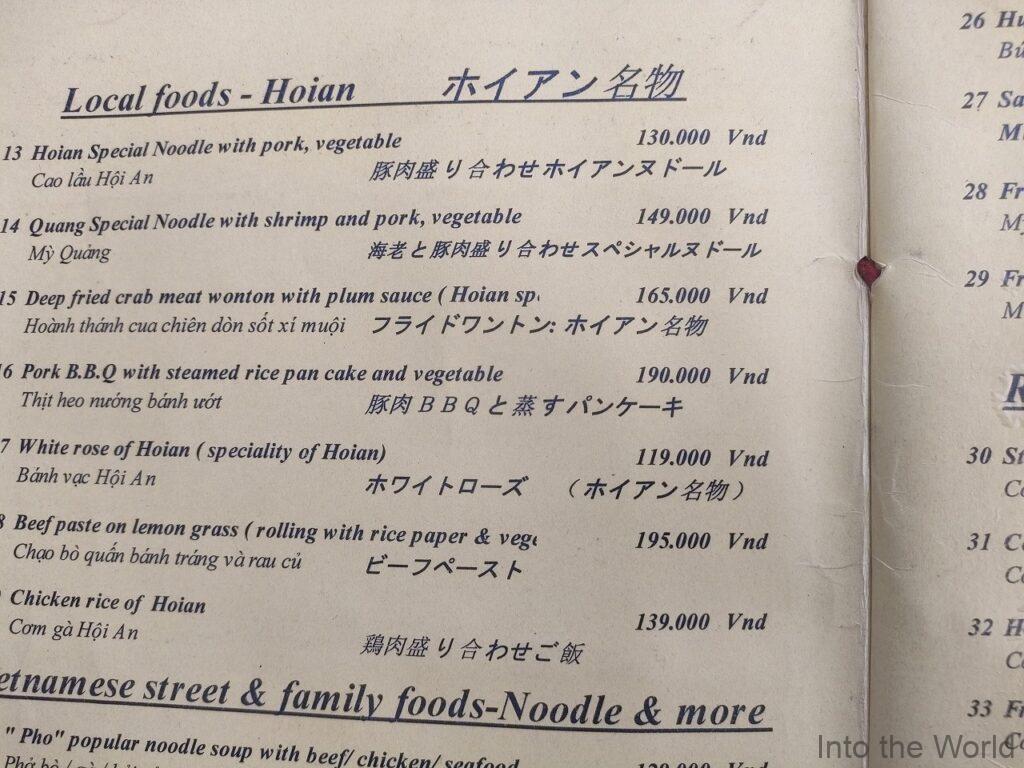 Local foods - Hoian ホイアン名物
13 Hoian Special Noodle with pork, vegetable 130.000 Vnd
Cao lầu Hội An 豚肉盛り合わせホイアンヌドール
14 Quang Special Noodle with shrimp and pork, vegetable 149.000 Vnd
Mỳ Quảng 海老と豚肉盛り合わせスペシャルヌドール
15 Deep fried crab meat wonton with plum sauce ( Hoian 165.000 Vnd
Hoành thánh cua chiên dòn sốt xí muội フライドワントン: ホイアン名物
6 Pork B.B.Q with steamed rice pan cake and vegetable 190.000 Vnd
Thịt heo nướng bánh ướt 豚肉ＢＢＱと蒸すパンケーキ
7 White rose of Hoian ( speciality of Hoian) 119.000 Vnd
Bánh vạc Hội An ホワイトローズ （ホイアン名物）
8 Beef paste on lemon grass ( rolling with rice paper & 195.000 Vnd
Chạo bò quấn bánh tráng và rau củ ビーフペースト
Chicken rice of Hoian 139.000 Vnd
Cơm gà Hội An 鶏肉盛り合わせご飯
etnamese street & family foods-Noodle & more
" Pho" popular noodle soup with beef/ chicken/ seafood
26
27
28
29
30
31
32
33
Into the World